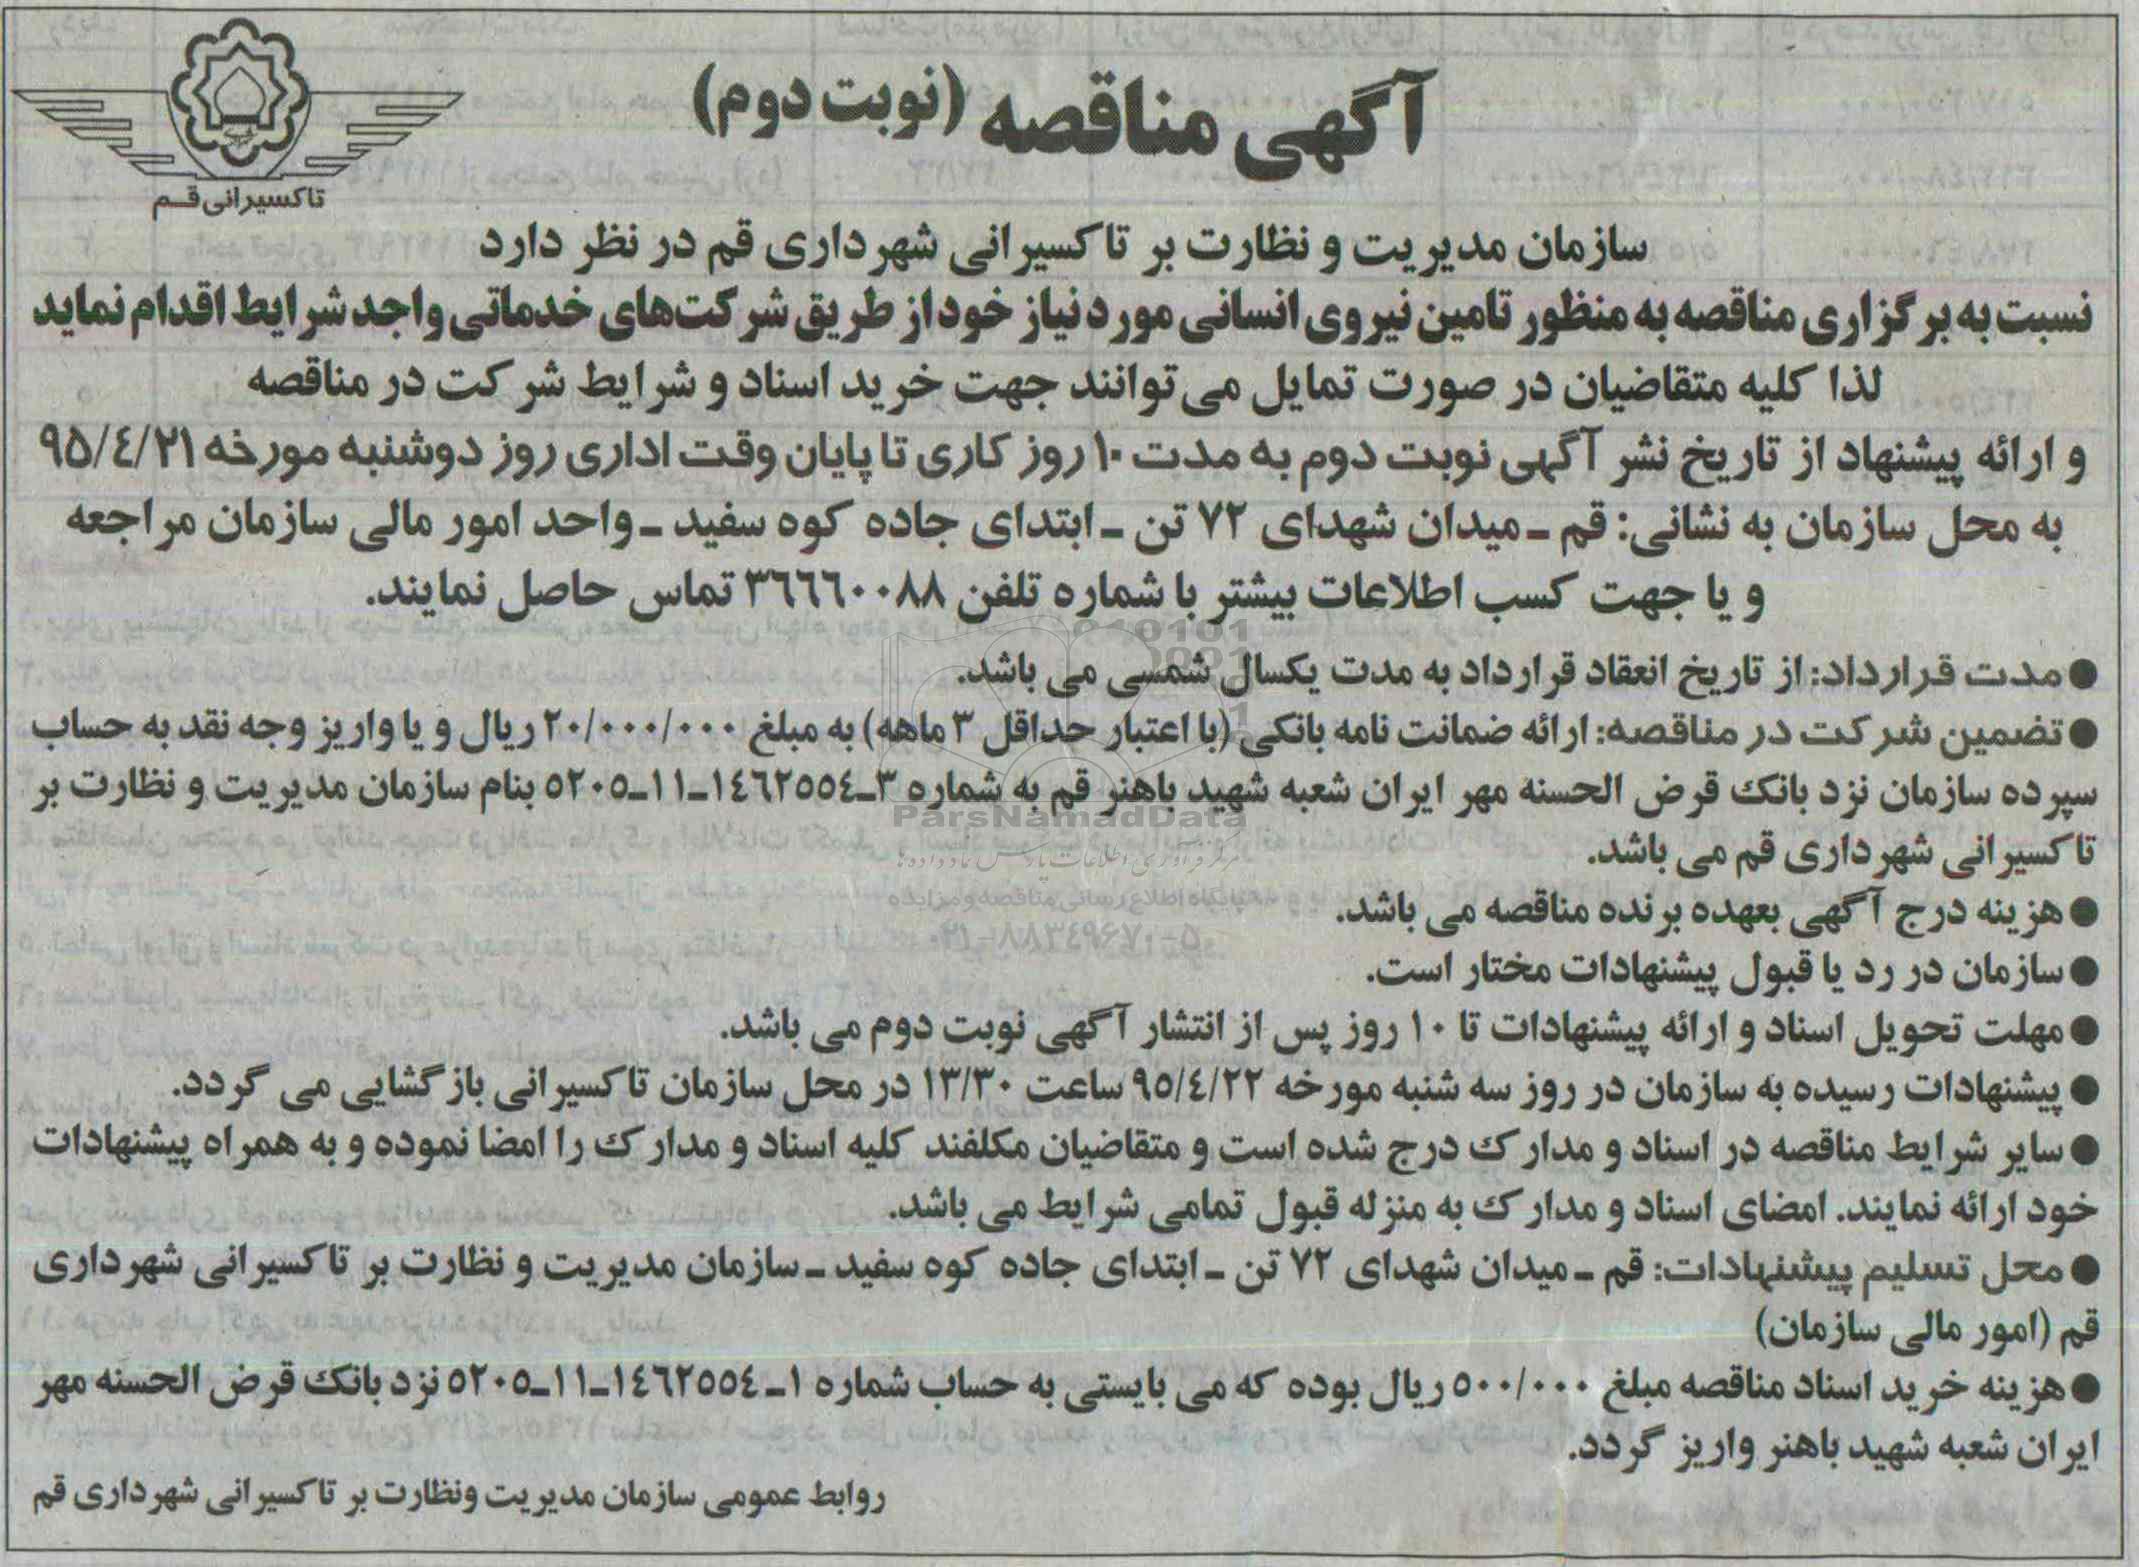 آگهی مناقصه (نوبت دوم)
تاکسیرانی قم
سازمان مدیریت و نظارت بر تاکسیرانی شهرداری قم در نظر دارد
نسبت به برگزاری مناقصه به منظور تامین نیروی انسانی مورد نیاز خود از طریق شرکت‌های خدماتی واجد شرایط اقدام نماید
لذا کلیه متقاضیان در صورت تمایل می‌توانند جهت خرید اسناد و شرایط شرکت در مناقصه
و ارائه پیشنهاد از تاریخ نشر آگهی نوبت دوم به مدت ۱۰ روز کاری تا پایان وقت اداری روز دوشنبه مورخه ۹۵/۴/۲۱
به محل سازمان به نشانی: قم ـ میدان شهدای ۷۲ تن ـ ابتدای جاده کوه سفید ـ واحد امور مالی سازمان مراجعه
و یا جهت کسب اطلاعات بیشتر با شماره تلفن ۳۶۶۶۰۰۸۸ تماس حاصل نمایند.
● مدت قرارداد: از تاریخ انعقاد قرارداد به مدت یکسال شمسی می باشد.
● تضمین شرکت در مناقصه: ارائه ضمانت نامه بانکی (با اعتبار حداقل ۳ ماهه) به مبلغ ۲۰/۰۰۰/۰۰۰ ریال و یا واریز وجه نقد به حساب
سپرده سازمان نزد بانک قرض الحسنه مهر ایران شعبه شهید باهنر قم به شماره ۳ـ۱۴۶۲۵۵۴ـ۱۱ـ۵۲۰۵ بنام سازمان مدیریت و نظارت بر
تاکسیرانی شهرداری قم می باشد.
● هزینه درج آگهی بعهده برنده مناقصه می باشد.
● سازمان در رد یا قبول پیشنهادات مختار است.
● مهلت تحویل اسناد و ارائه پیشنهادات تا ۱۰ روز پس از انتشار آگهی نوبت دوم می باشد.
● پیشنهادات رسیده به سازمان در روز سه شنبه مورخه ۹۵/۴/۲۲ ساعت ۱۳/۳۰ در محل سازمان تاکسیرانی بازگشایی می گردد.
● سایر شرایط مناقصه در اسناد و مدارک درج شده است و متقاضیان مکلفند کلیه اسناد و مدارک را امضا نموده و به همراه پیشنهادات
خود ارائه نمایند. امضای اسناد و مدارک به منزله قبول تمامی شرایط می باشد.
● محل تسلیم پیشنهادات: قم ـ میدان شهدای ۷۲ تن ـ ابتدای جاده کوه سفید ـ سازمان مدیریت و نظارت بر تاکسیرانی شهرداری
قم (امور مالی سازمان)
● هزینه خرید اسناد مناقصه مبلغ ۵۰۰/۰۰۰ ریال بوده که می بایستی به حساب شماره ۱ـ۱۴۶۲۵۵۴ـ۱۱ـ۵۲۰۵ نزد بانک قرض الحسنه مهر
ایران شعبه شهید باهنر واریز گردد.
روابط عمومی سازمان مدیریت ونظارت بر تاکسیرانی شهرداری قم
ParsNamadData